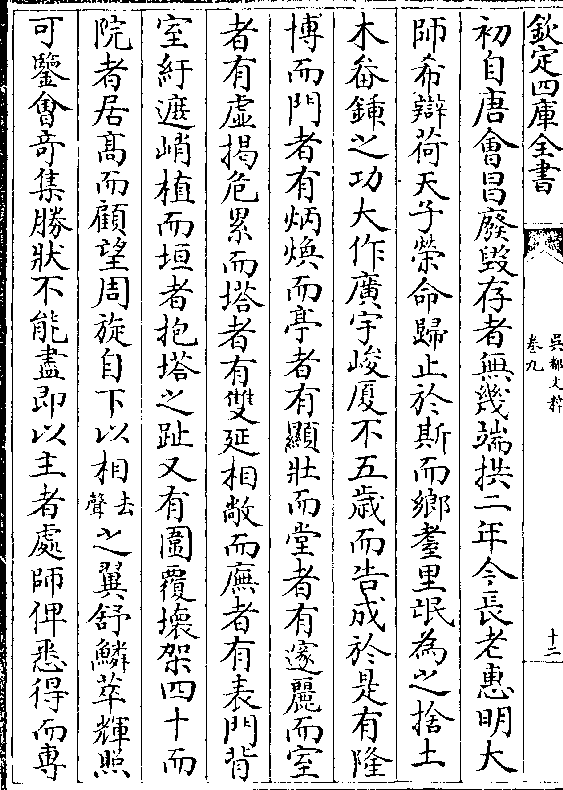 欽定四庫全書
吳都文粹
卷九
十二
初自唐會昌廢毀存者無幾端拱二年今長老惠明大
師希辯荷天子榮命歸止於斯而鄉耋里氓為之捨土
木畚鍤之功大作廣宇峻厦不五歲而告成於是有隆
博而門者有炳煥而亭者有顯壯而堂者有邃麗而室
者有虛揭危累而塔者有雙延相敞而廡者有表門背
室紆遮峭植而垣者抱塔之趾又有圜覆壞架四十而
院者居髙而顧望周旋自下以相去聲之翼舒鱗萃輝照
可鑒㑹竒集勝狀不能盡即以主者處師俾悉得而專